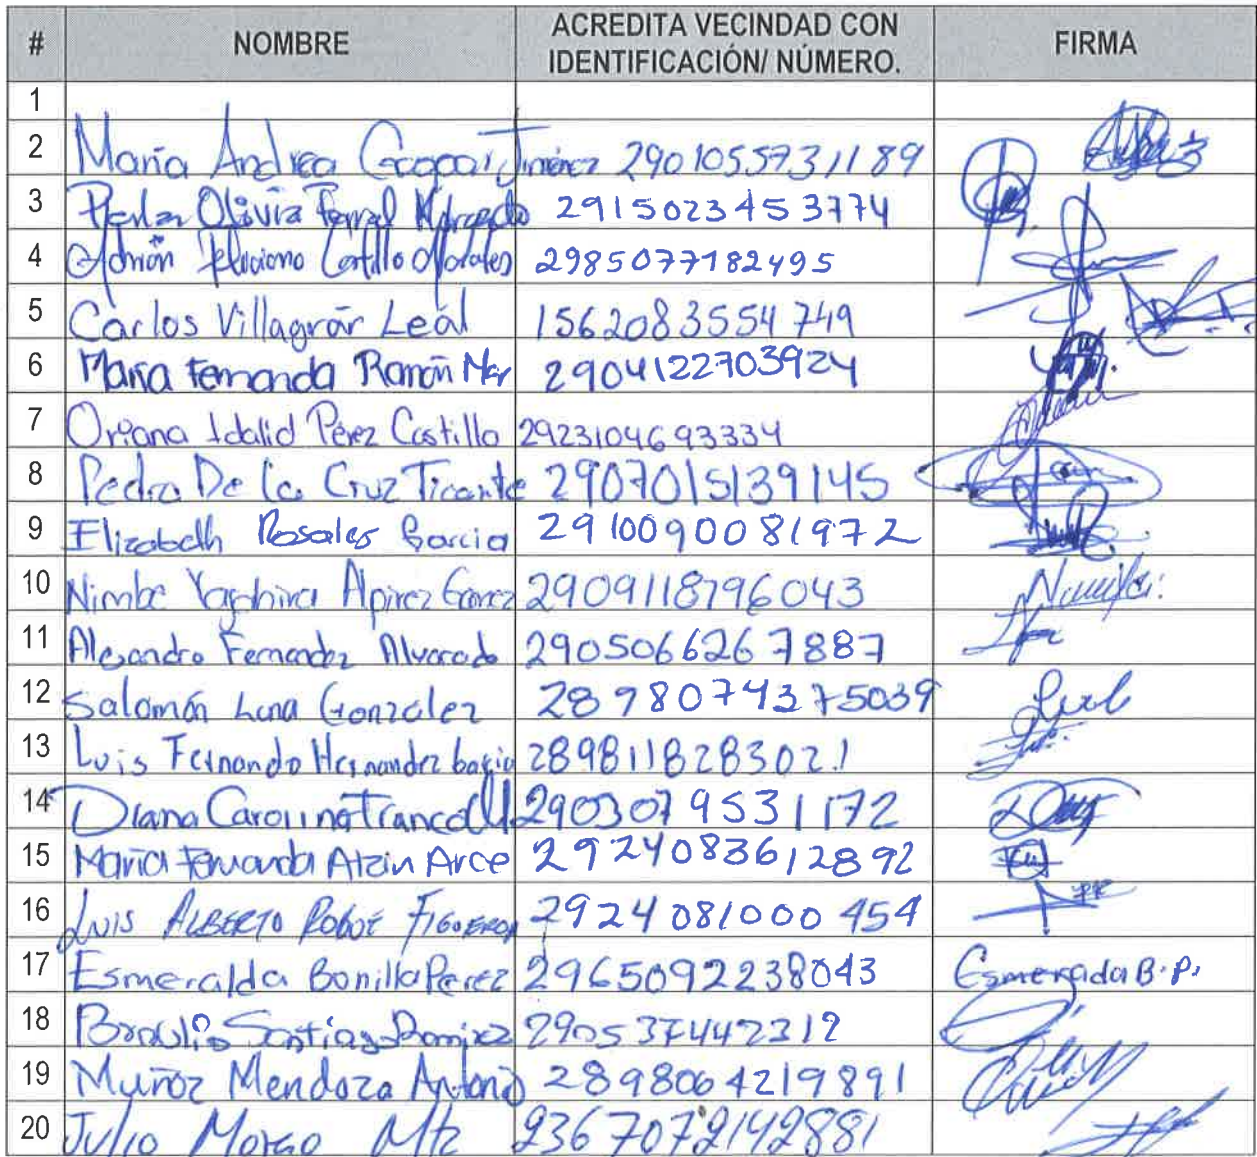 # NOMBRE ACREDITA VECINDAD CON IDENTIFICACIÓN/ NÚMERO. FIRMA
1
2 María Andrea Jiménez 2901055731189
3 Perla Olivia Ferral 2915023453774
4 Adrián Castillo Morales 2985077182495
5 Carlos Villagrár Leal 1562083554749
6 María Fernanda Ramón 2904122703924
7 Oriana Idalid Pérez Castillo 2923104693334
8 Pedro De la Cruz Ticante 2907015139145
9 Elizabeth Rosales Garcia 2910090081972
10 Nimbe 2909118796043
11 Alejandro Fernandez Alvarado 2905066267887
12 Salomón Luna Gonzalez 2898074375039
13 Luis Fernando Hernandez 2898118283021
14 Diana Carolina 2903079531172
15 María Fernanda Atzin Arce 2924083612892
16 LUIS ALBERTO FIGUEROA 2924081000454
17 Esmeralda Bonilla Perez 2965092238043 Esmerada B.P.
18 Braulio Santiago Ramirez 2905374442312
19 Muñoz Mendoza Antonio 2898064219891
20 Julio Mtz